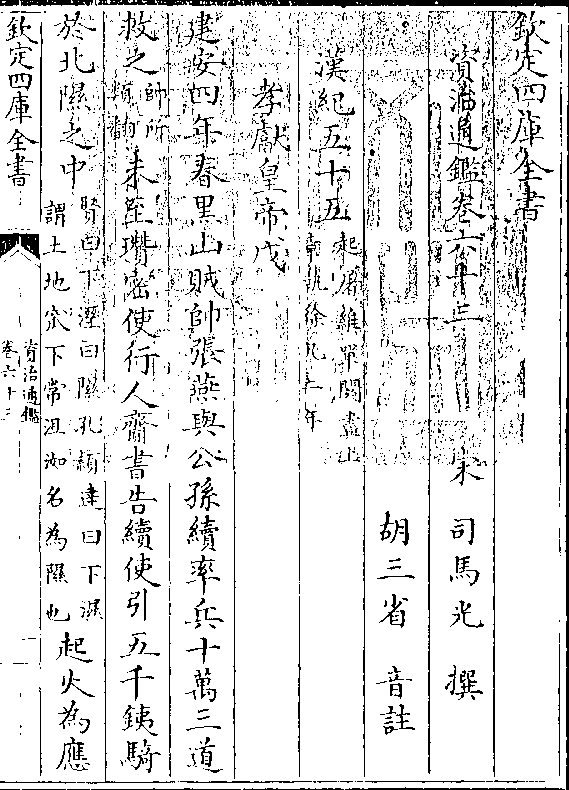 欽定四庫全書
資治通鑑卷六十三　宋　司馬光　撰
胡三省　音註
漢紀五十五起屠維單閼盡上章執徐凡二年
孝獻皇帝戊
建安四年春黑山賊帥張燕與公孫續率兵十萬三道
救之帥所類翻未至瓚密使行人齎書告續使引五千銕騎
於北隰之中賢曰下溼曰隰孔穎達曰下濕謂土地窊下常沮洳名為隰也起火為應
欽定四庫全書
資治通鑑
卷六十三